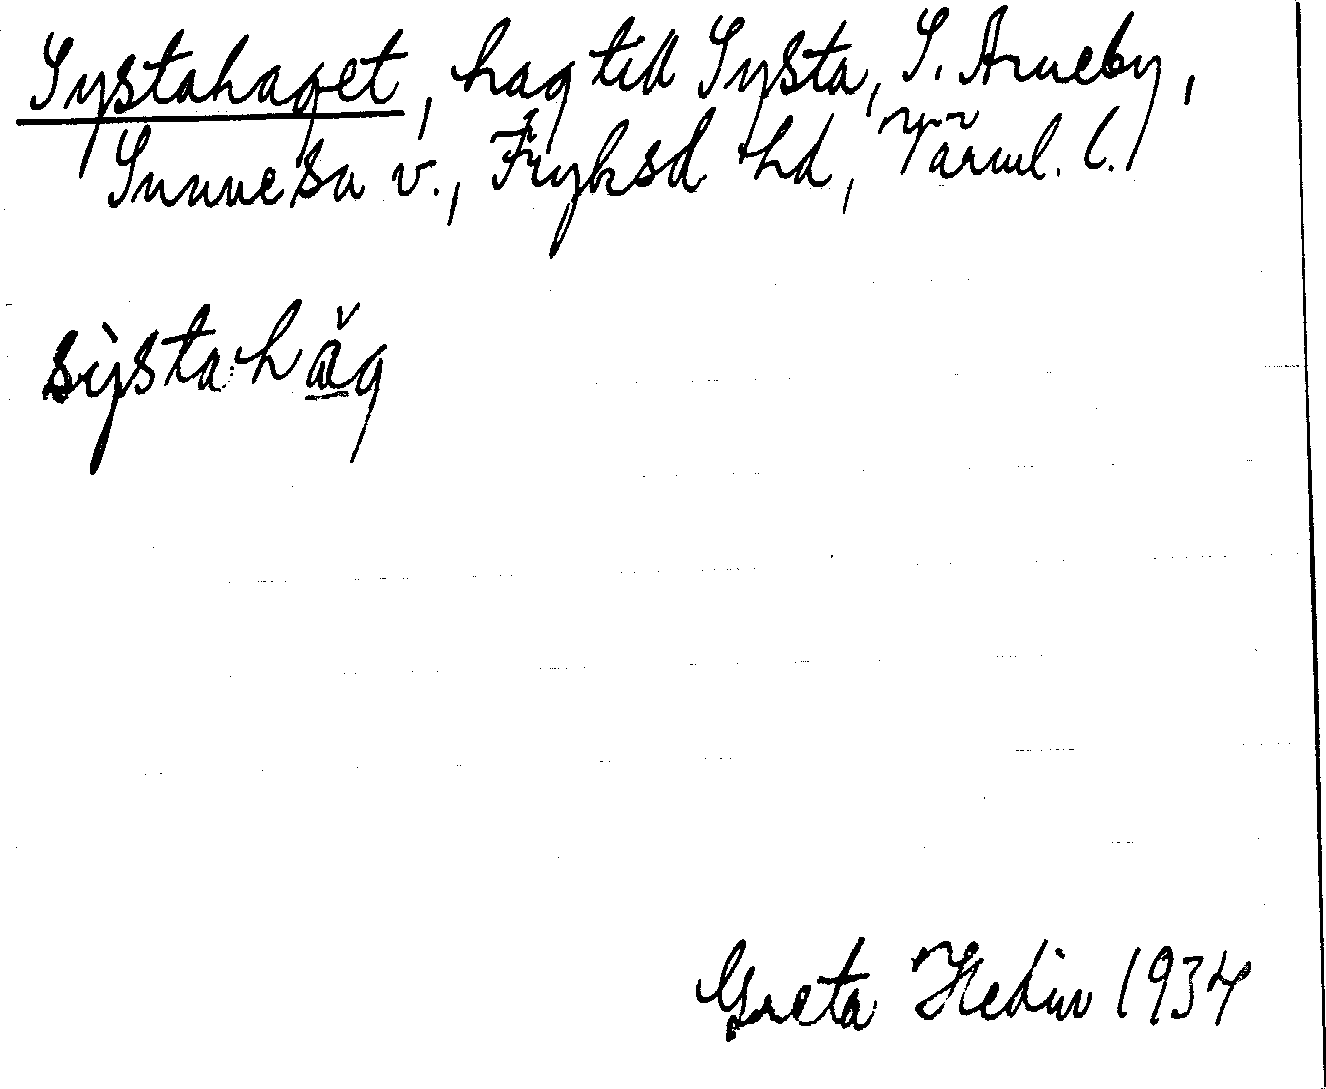 Systahaget, hag till Systa, S. Arneby,
Sunne sn v., Fryksd hd, Värml. l.
sỳstahǎg
Greta Hedin 1934